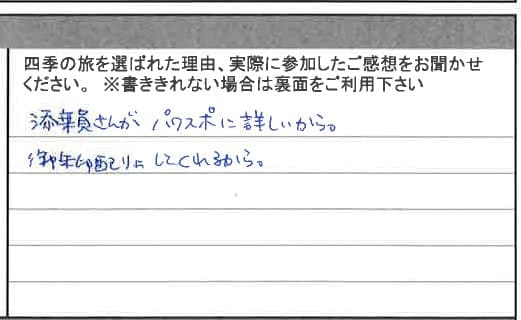 四季の旅を選ばれた理由、実際に参加したご感想をお聞かせ
ください。 ※書ききれない場合は裏面をご利用下さい
添乗員さんが パワスポに詳しいから。
御朱印配りに してくれるから。